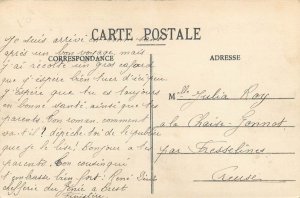 Je suis arrivé
CARTE POSTALE
après un bon voyage mais
CORRESPONDANCE
ADRESSE
j'ai récolté un gros
que j'espère bien
J'espère que tu es toujours
en bonne santé ainsi que tes
parents. Ton roman comment
va-t-il? dépêche toi de le publier
que je le lise! Bonjour à tes
parents. Ton cousin qui
t'embrasse bien fort: René
M lle Julia Roy
à la Chaise-Jannot
par Fresselines
Creuse